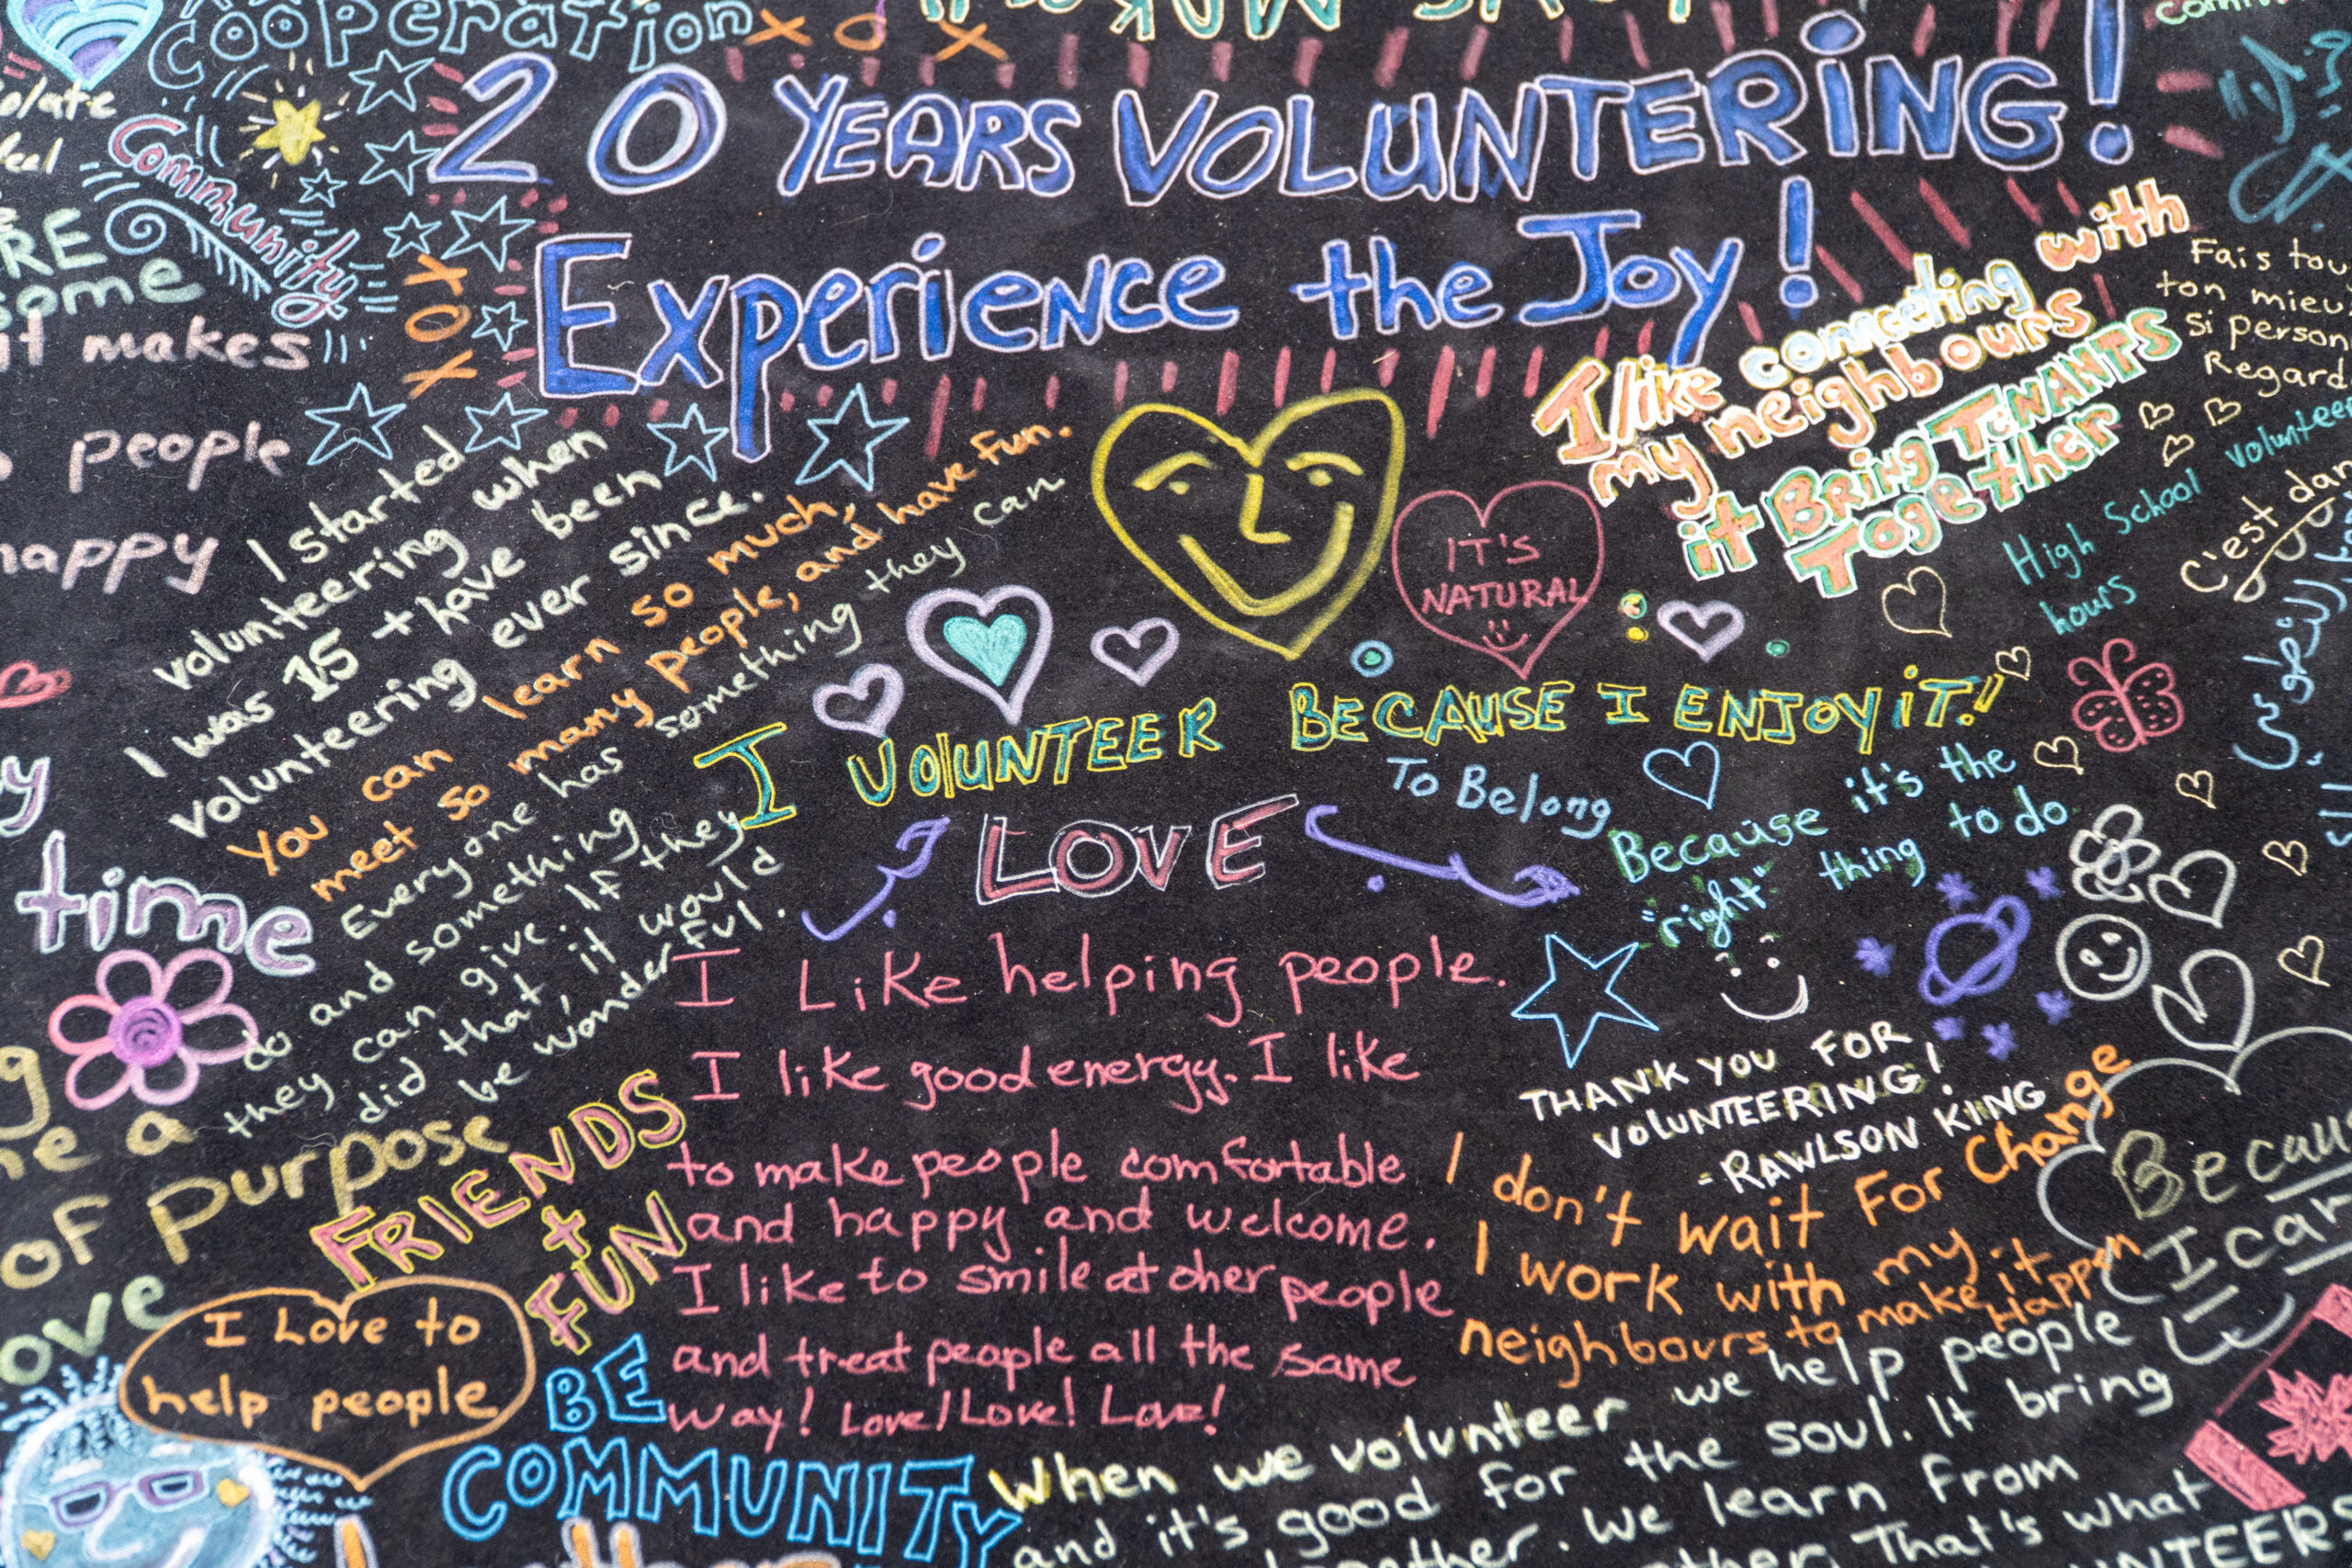 Cooperation
XOX
20 YEARS VOLUNTERiNG!
Experience the Joy!
Community
it makes
people
happy
XOX
I started
volunteering when
I was 15 + have been
volunteering ever since.
You can learn so much,
meet so many people, and have fun.
Everyone has something they can
do and something
they can give. If they
did that it would
be wonderful.
IT'S
NATURAL
I like connecting with
my neighbours
it Bring TENANTS
Together
Fais
ton
si
Regard
High School volunteer
hours
C'est
I VOlUNTEER BECAUSE I ENJOY iT!
To Belong
LOVE
Because it's the
"right" thing to do
time
I Like helping people.
I like good energy. I like
to make people comfortable
and happy and welcome.
I like to smile at other people
and treat people all the same
way! Love! Love! Love!
THANK YOU FOR
VOLUNTEERING!
- RAWLSON KING
I don't wait For Change
I work with my
neighbours to make it
Happen
a
of purpose
FRIENDS
+
FUN
I Love to
help people
BE
COMMUNITY
I can
When we volunteer we help people
and it's good for the soul. It bring
We learn from
That's what